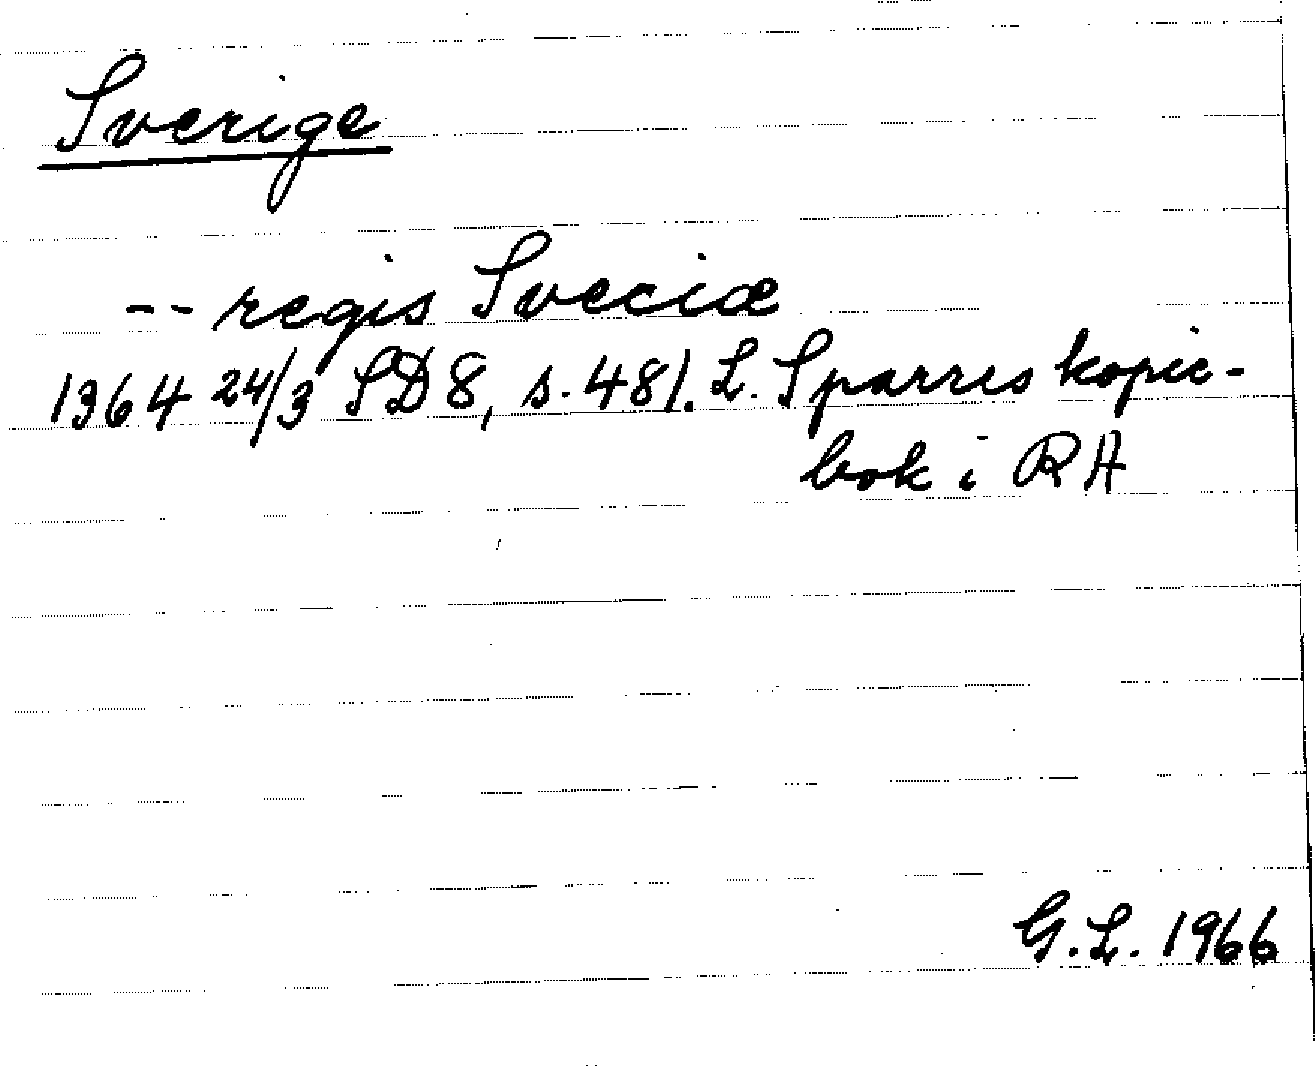 Sverige
-- regis Sveciæ
1364 24/3 SD 8, s. 481. L. Sparres kopie-
bok i RA
G.L. 1966